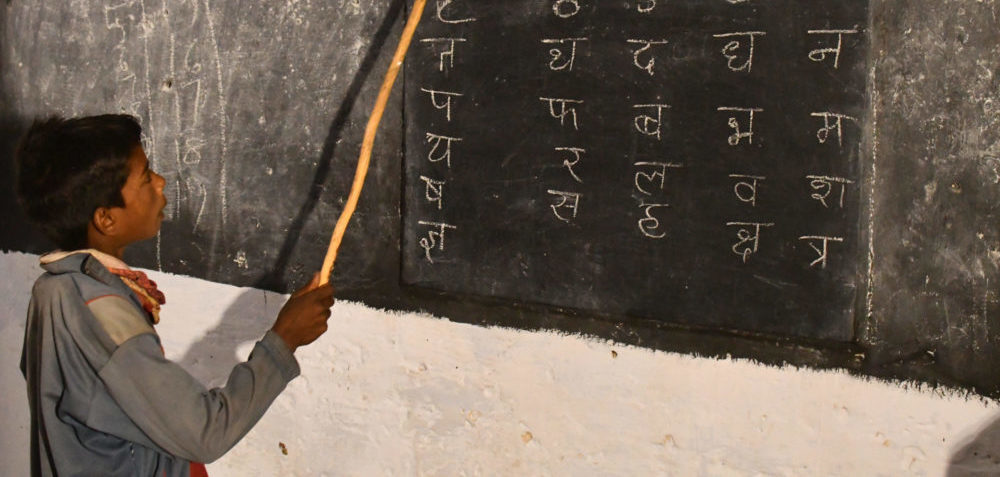 त थ द ध न
प फ ब भ म
य र ल व श
ष स ह क्ष त्र
ज्ञ